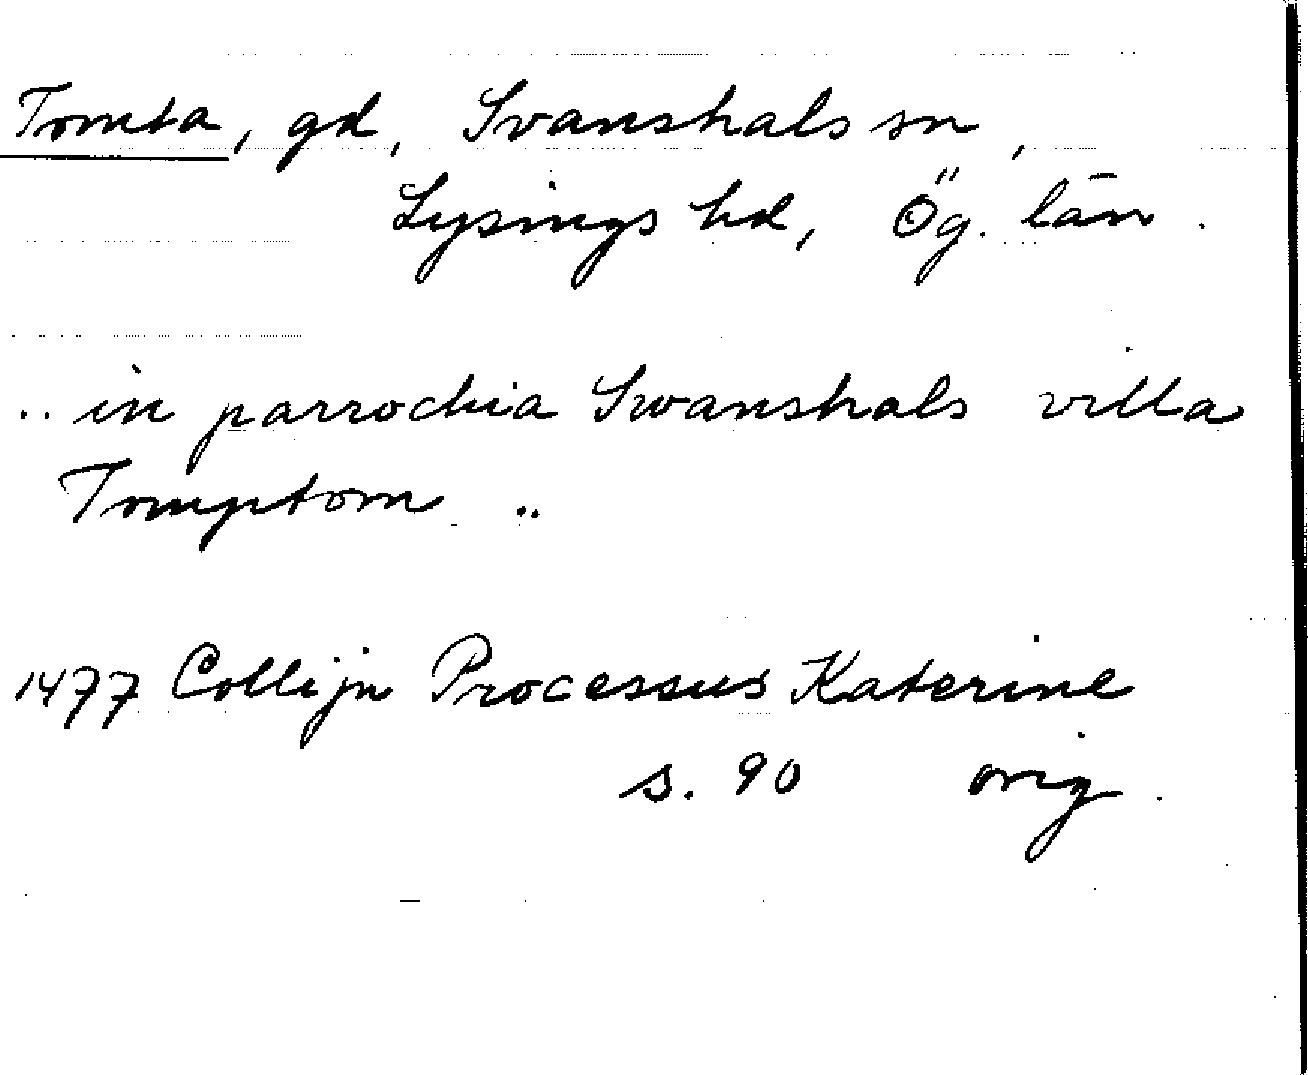 Tomta, gd, Svanshals sn,
Lysings hd, Ög. län.
.. in parrochia Swanshals villa
Tomptom ..
1477 Collijn Processus Katerine
s. 90 orig.